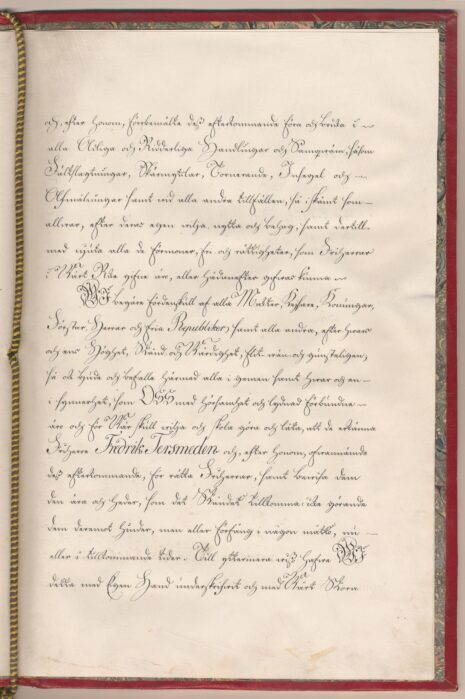 och, efter honom, förbemälte dess efterkommande föra och bruka i
alla Adeliga och Ridderliga Handlingar och Samqväm, såsom
Fältslagningar, Skärmytslar, Tornerande, Insegel och
Afmålningar samt vid alla andra tillfällen, så i skämt som
allvar, efter deras egen vilja, nytta och behag, samt dertill
med njuta alla de förmoner, fri och rättigheter, som Friherrar
i Wårt Rike gifne äro, eller hädanefter gifvas kunna
WI begäre fördenskull af alla Kejsare, Konungar,
Furstar, Herrar och Fria Republiker, samt alla andra, efter hvars
och ens Höghet, Stånd och Wärdighet, och gunsteligen,
så ock bjude och befalle härmed alla i gemen samt hvar och en
i synnerhet, som OSS med hörsamhet och lydnad förbundne
äro och för Wår skull vilja och skola göra och låta, att de erkänna
Friherre Fredrik Tersmeden och, efter honom, ofvannämnde
dess efterkommande, för rätta Friherrar, samt bevisa dem
den ära och heder, som det Ståndet tillkomma: icke görande
dem deremot hinder, men eller förfång i någon måtto, nu
eller i tillkommande tider. Till yttermera visso hafve WI
detta med Egen Hand underskrifvit och med Wårt Stora